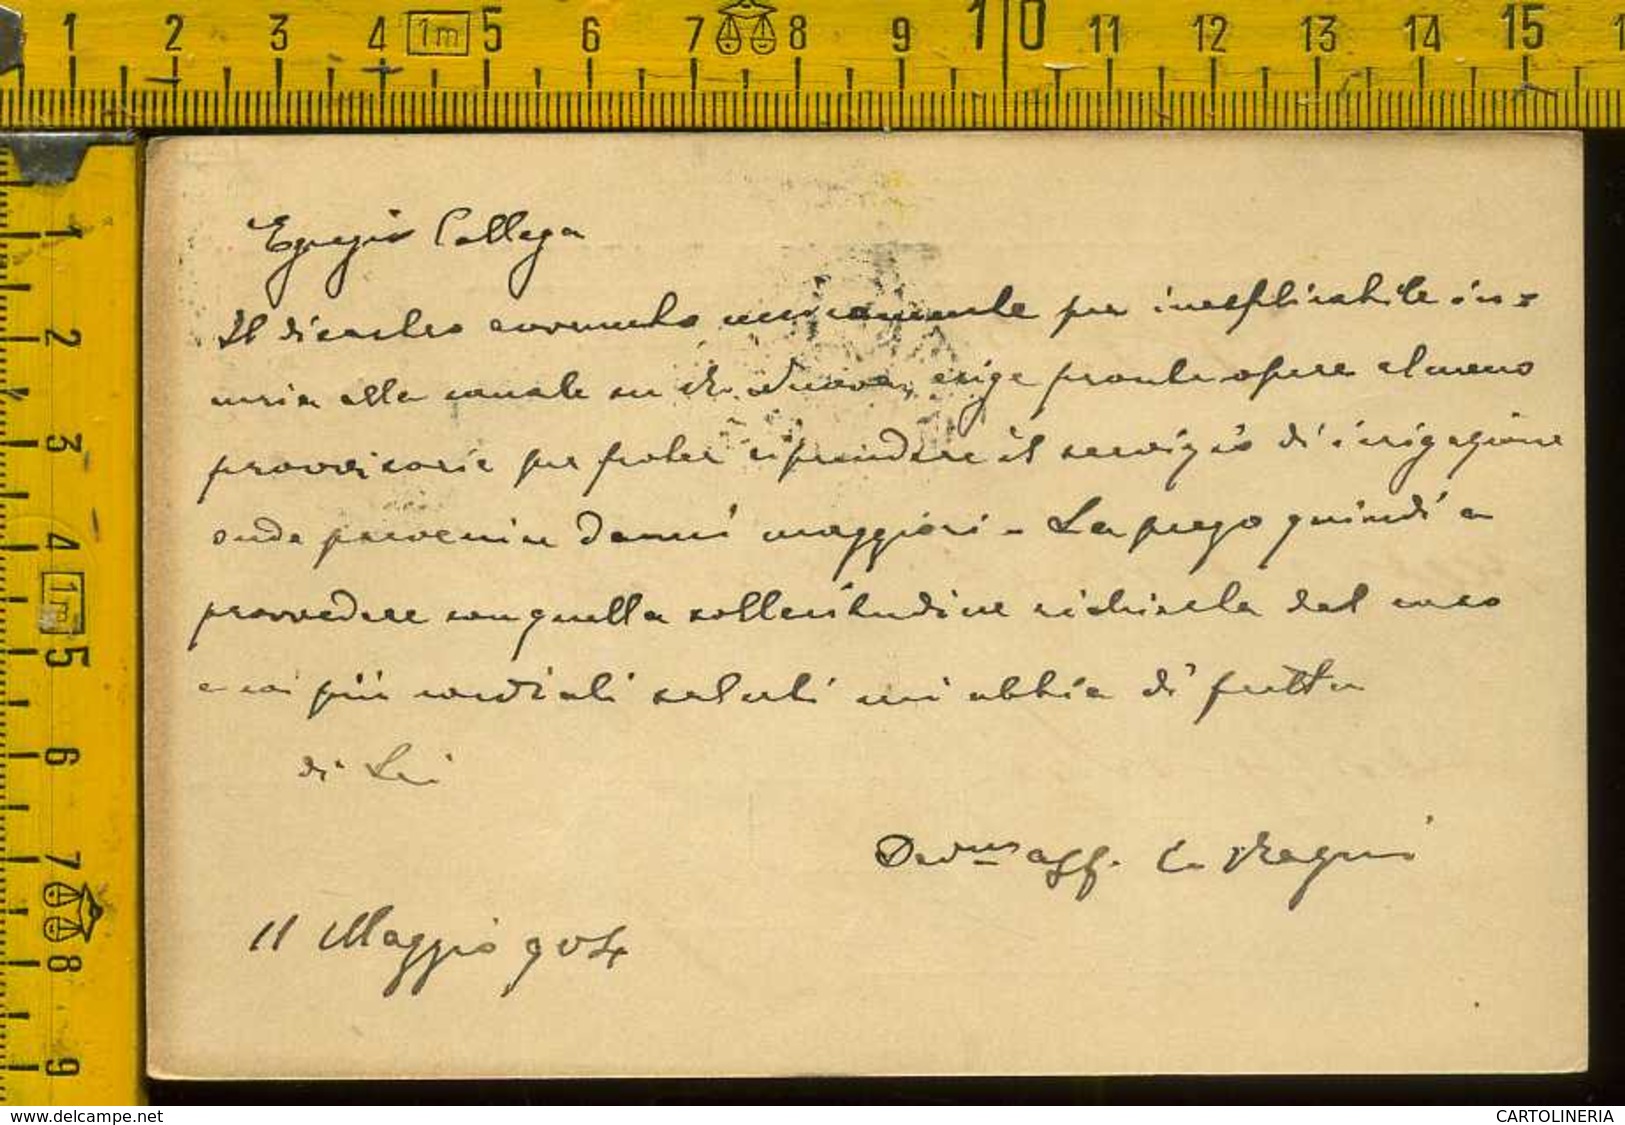 1 2 3 4 1m 5 6 7 8 9 10 11 12 13 14 15 1
1 2 3 4 1m 5 6 7 8 9
Egregio Collega
Il disastro avvenuto unicamente per inesplicabile in=
curia alla canale su di Nuova, esige pronte opere almeno
provvisorie per poter riprendere il servizio di irrigazione
onde prevenire danni maggiori - La prego quindi a
provvedere con quella sollecitudine richiesta dal caso
e coi più cordiali saluti mi abbia di fretta
di Lei
Dev.mo aff.
11 Maggio 904
www.delcampe.net
CARTOLINERIA